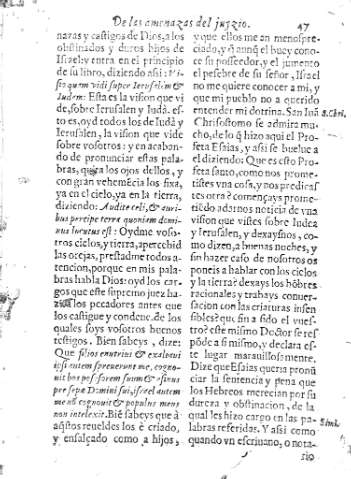 De las amenazas del juyzio.
47
nazas y castigos de Dios, a los
obstinados y duros hijos de
Israel: y entra en el principio
de su libro, diziendo assi: Vi-
sio quem vidi super Ierusalem &
Iudem: Esta es la vision que vi
de, sobre Ierusalen y Iudà. es-
to es, oyd todos los de Iudà y
Ierusalen, la vision que vide
sobre vosotros: y en acaban-
do de pronunciar estas pala-
bras, quita los ojos dellos, y
con gran vehemẽcia los fixa,
ya en el cielo, ya en la tierra,
diziendo: Audite cęli, & auri-
bus percipe terra quoniam domi-
nus locutus est: Oydme voso-
tros cielos, y tierra, apercebid
las orejas, prestadme todos a-
tencion, porque en mis pala-
bras habla Dios: oyd los car-
gos que este supremo juez ha-
ze a los pecadores antes que
los castigue y condene. de los
quales soys vosotros buenos
testigos. Bien sabeys, dize:
Que filios enutriui & exaltaui
ipsi autem spreuerunt me, cogno-
uit bos possessorem suum & asinus
presepe Domini sui, israel autem
me nõ cognouit & populus meus
non intelexit. Biẽ sabeys que à
aq̃stos reueldes los è criado,
y ensalçado como a hijos,
y que ellos me an menospre-
ciado, y q̃ aunq̃ el buey cono-
ce su possedor, y el jumento
el pesebre de su señor, Israel
no me quiere conocer a mi, y
que mi pueblo no a querido
entender mi dotrina. San Iuã
Chrisostomo se admira mu-
cho, de lo q̃ hizo aqui el Pro-
feta Esaias, y assi se buelue a
el diziendo: Que es esto Pro-
feta santo, como nos prome-
tistes vna cosa, y nos predicas
tes otra? començays prome-
tiẽdo adarnos noticia de vna
vision que vistes sobre Iudea
y Ierusalen, y dexaysnos, co-
mo dizen, a buenas noches, y
sin hazer caso de nosotros os
poneis a hablar con los cielos
y la tierra? dexays los hõbres
racionales y trabays conuer-
sacion con las criaturas insen
sibles? que fin a sido el vues-
tro? este mismo Doctor se res
põde a si mismo, y declara es-
te lugar marauillosamente.
Dize que Esaias queria pronũ
ciar la sentencia y pena que
los Hebreos merecian por su
dureza y obstinacion, de la
qual les hizo cargo en las pa-
labras referidas. Y assi como
quando vn escriuano, o nota-
rio
S. Chri.
Simi.